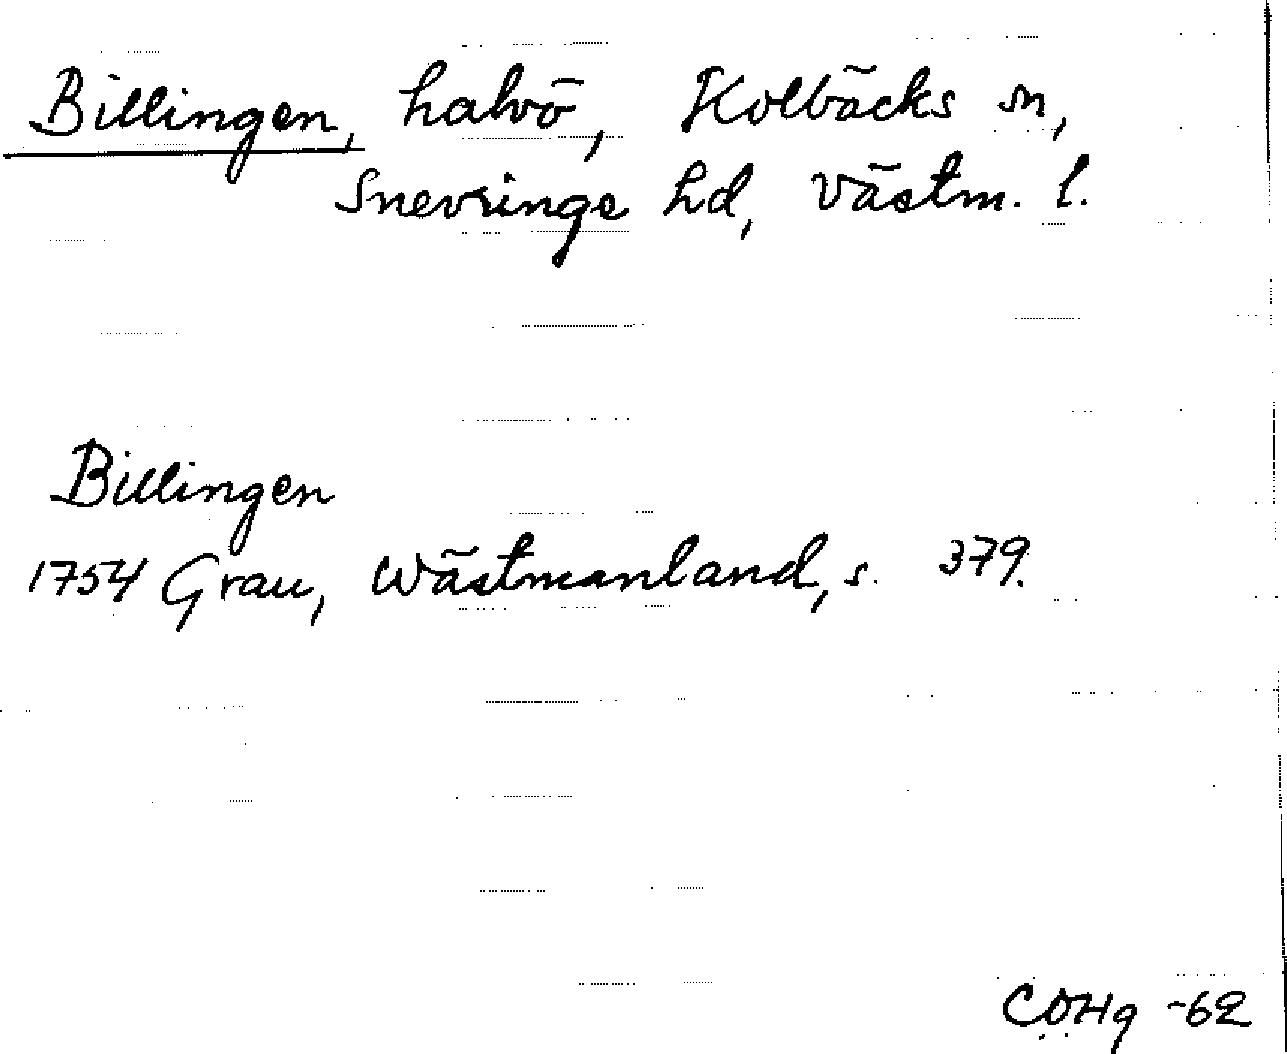 Billingen, halvö, Kolbäcks sn,
Snevringe hd, Västm. l.
Billingen
1754 Grau, Wästmanland, s. 379.
COHg -62